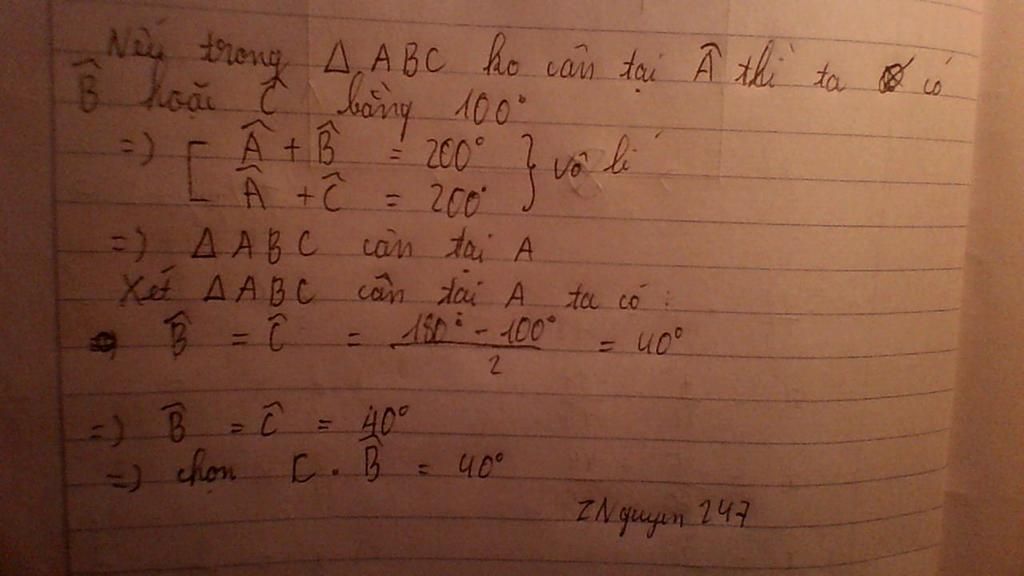 Nếu trong Δ ABC ko cân tại Â thì ta có
B̂ hoặc Ĉ bằng 100°
=> [ Â + B̂ = 200° } vô lí
Â + Ĉ = 200°
=> Δ ABC cân tại A
Xét Δ ABC cân tại A ta có :
B̂ = Ĉ = (180° - 100°) / 2 = 40°
=> B̂ = Ĉ = 40°
=> chọn C. B̂ = 40°
ZNguyen 247